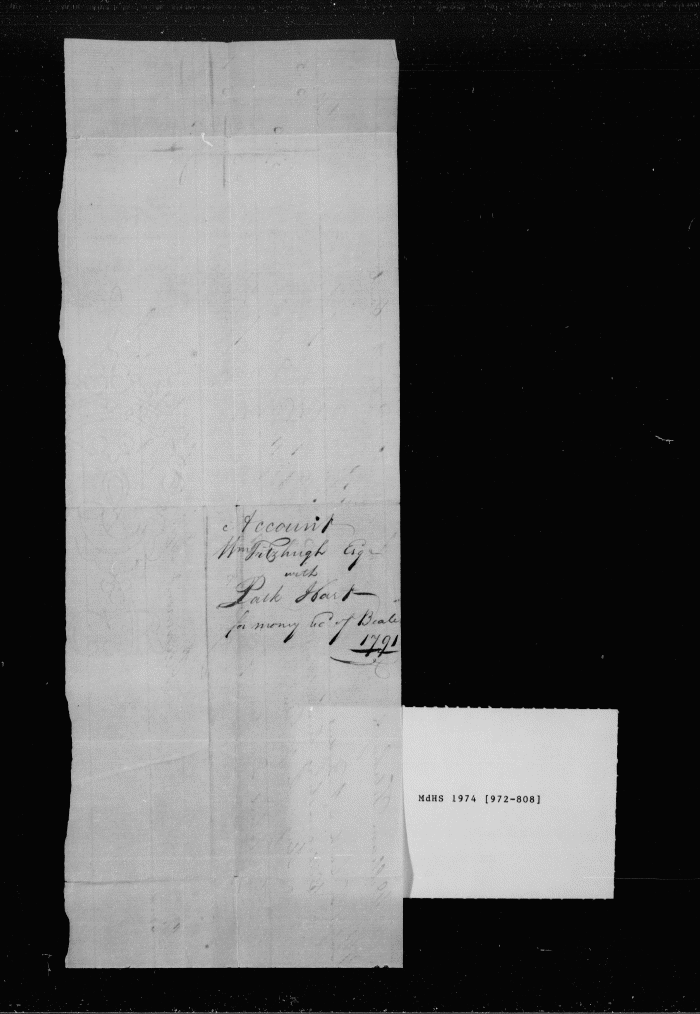 Account
Wm Fitzhugh Esqr
with
Hart
for money &c of Beale
1791
MdHS 1974 [972-808]